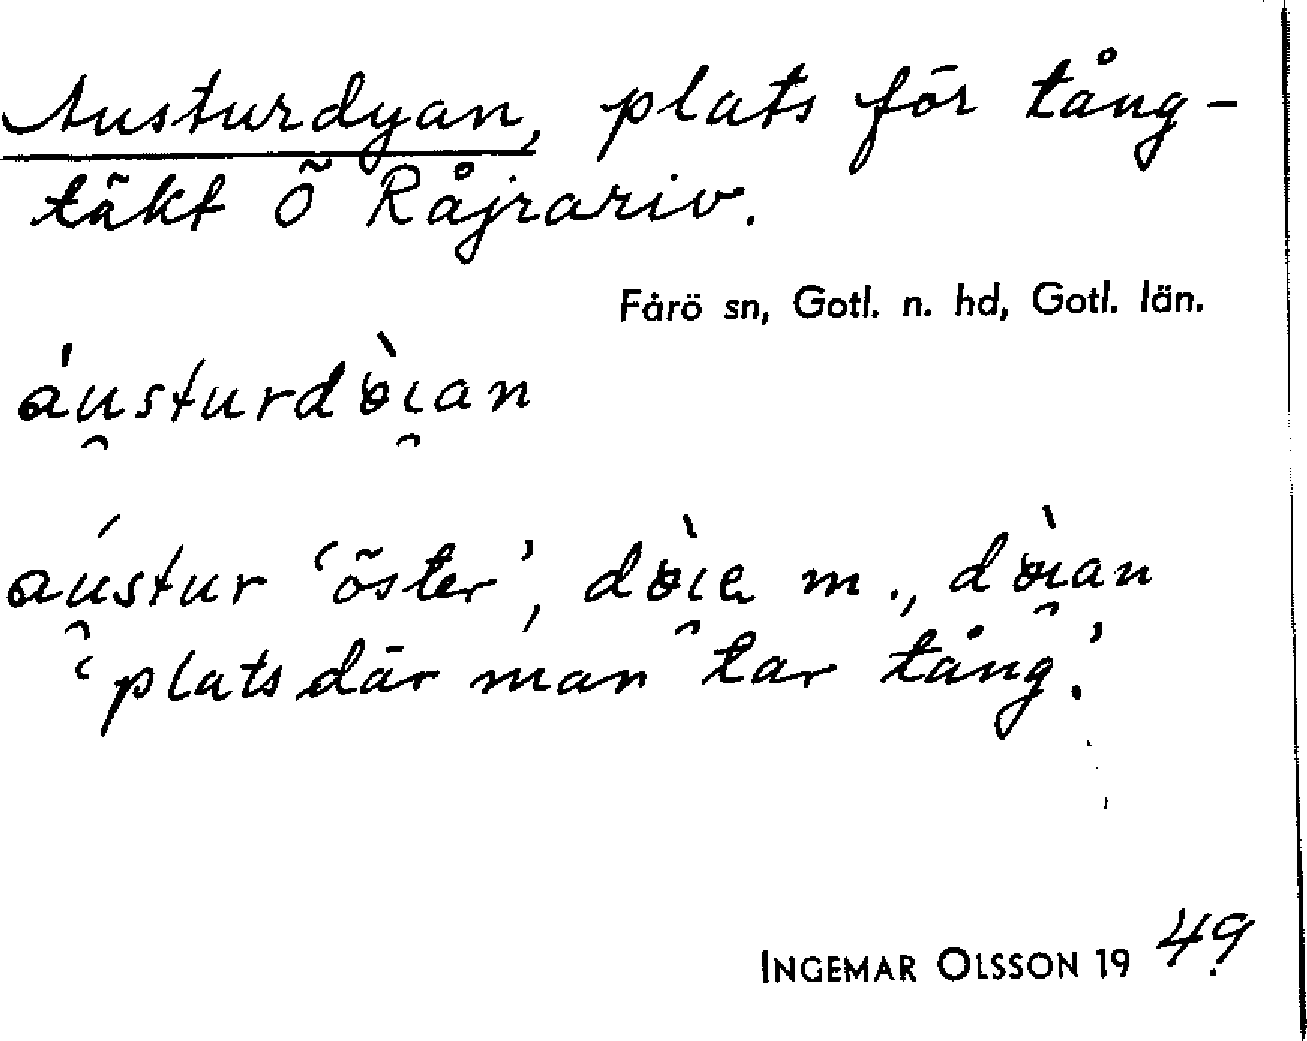 Austurdyan, plats för tång-
täkt Ö Råjrariv.
Fårö sn, Gotl. n. hd, Gotl. län.
áu̯sturdɵ̀ı̯an
áu̯stur ‘öster’, dɵ̀ı̯a m., dɵ̀ı̯an
‘plats där man tar tång’.
INGEMAR OLSSON 1949.